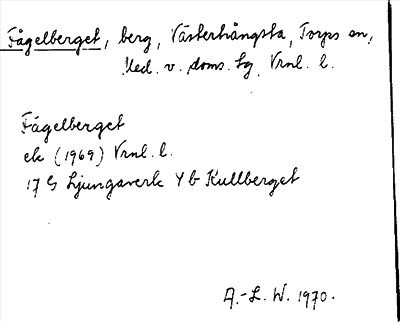 Fågelberget, berg, Västerhångsta, Torps sn,
Med. v. doms. tg Vrnl. l.
Fågelberget
ek (1969) Vrnl. l.
17 G Ljungaverk 4 b Kullberget
A.-L. W. 1970.